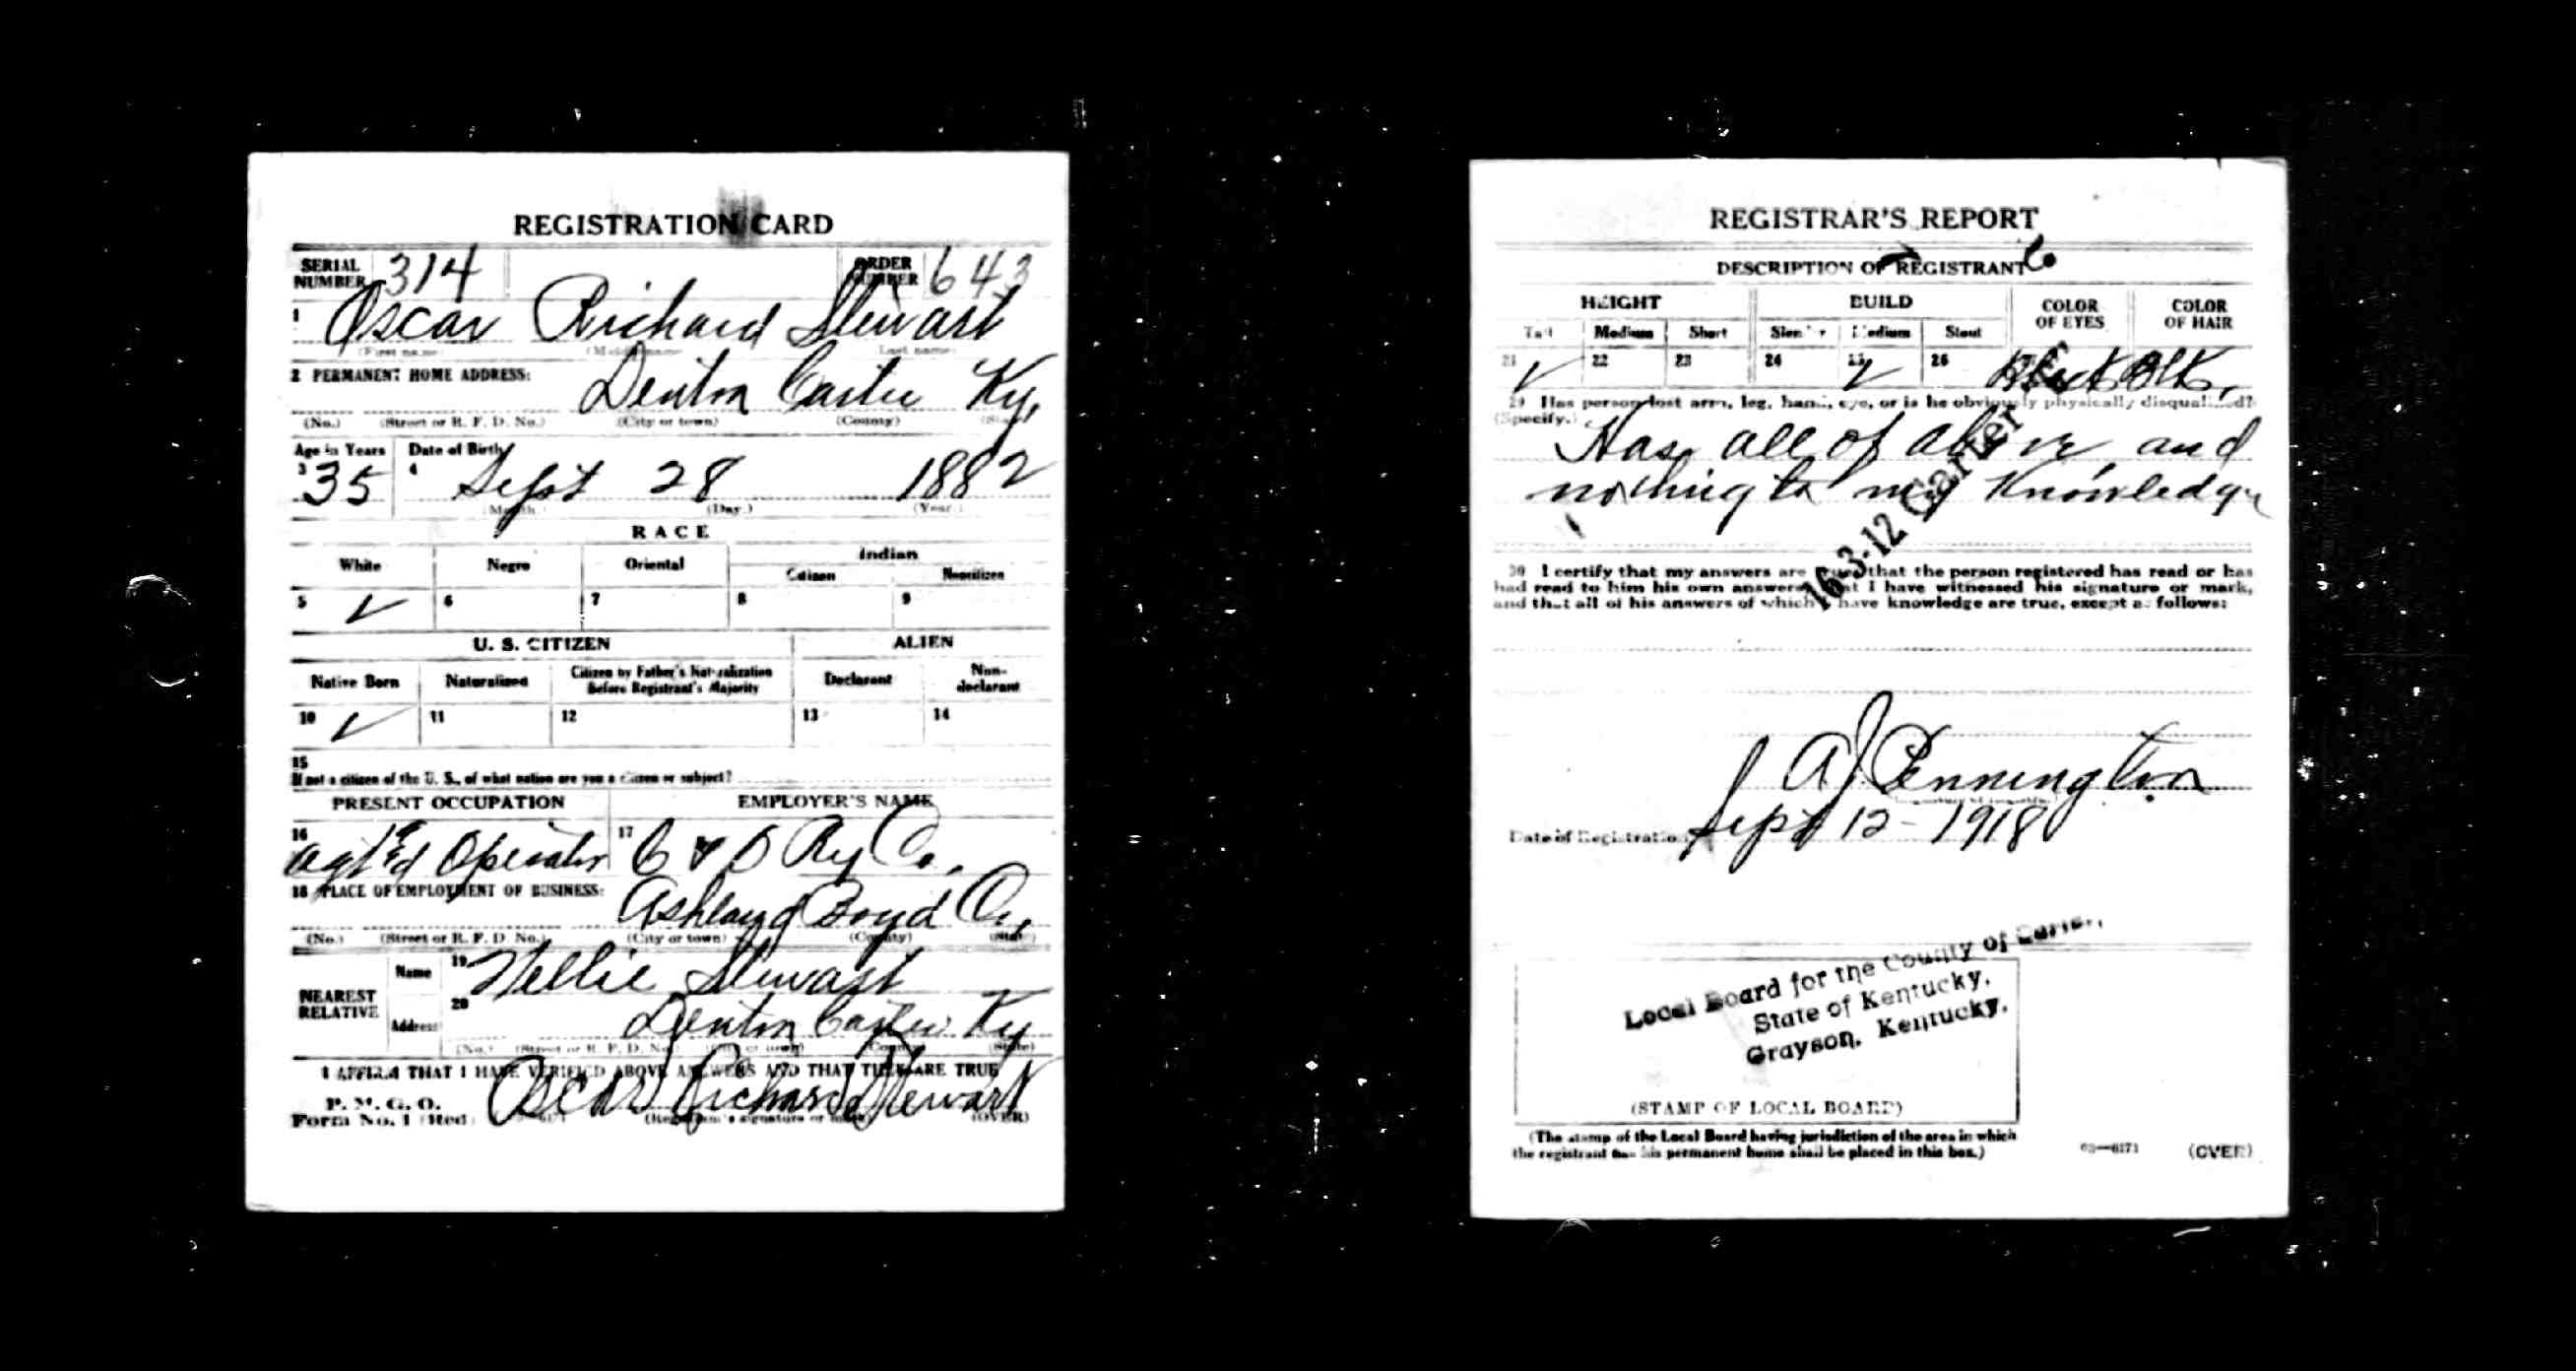 REGISTRATION CARD
SERIAL NUMBER 314 ORDER NUMBER 643
1 Oscar Richard Stewart
(First name) (Middle name) (Last name)
2 PERMANENT HOME ADDRESS: Denton Carter Ky.
(No.) (Street or R. F. D. No.) (City or town) (County) (State)
Age in Years Date of Birth
3 35 4 Sept 28 1882
(Month.) (Day.) (Year.)
RACE
White Negro Oriental Indian
Citizen Noncitizen
5 ✓ 6 7 8 9
U. S. CITIZEN ALIEN
Native Born Naturalized Citizen by Father's Naturalization Before Registrant's Majority Declarant Non-declarant
10 ✓ 11 12 13 14
15
If not a citizen of the U. S., of what nation are you a citizen or subject?
PRESENT OCCUPATION EMPLOYER'S NAME
16 Agt Operator 17 C & O Ry Co.
18 PLACE OF EMPLOYMENT OF BUSINESS: Ashland Boyd
(No.) (Street or R. F. D. No.) (City or town) (County) (State)
NEAREST RELATIVE
Name 19 Nellie Stewart
Address 20 Denton Carter Ky
(No.) (Street or R. F. D. No.) (City or town) (County) (State)
I AFFIRM THAT I HAVE VERIFIED ABOVE ANSWERS AND THAT THEY ARE TRUE
P. M. G. O.
Form No. 1 (Red) Oscar Richard Stewart
(Registrant's signature or mark) (OVER)
REGISTRAR'S REPORT
DESCRIPTION OF REGISTRANT
HEIGHT BUILD COLOR OF EYES COLOR OF HAIR
Tall Medium Short Slender Medium Stout
21 ✓ 22 23 24 25 ✓ 26 Blk.
29 Has person lost arm, leg, hand, eye, or is he obviously physically disqualified?
(Specify.)
Has all of above and
nothing to my Knowledge
16-3-12 Carter
30 I certify that my answers are true, that the person registered has read or has
had read to him his own answers, that I have witnessed his signature or mark,
and that all of his answers of which I have knowledge are true, except as follows:
A J Pennington
Date of Registration Sept 12-1918
Local Board for the County of Carter,
State of Kentucky,
Grayson, Kentucky.
(STAMP OF LOCAL BOARD)
(The stamp of the Local Board having jurisdiction of the area in which
the registrant has his permanent home shall be placed in this box.)
03—6171 (OVER)